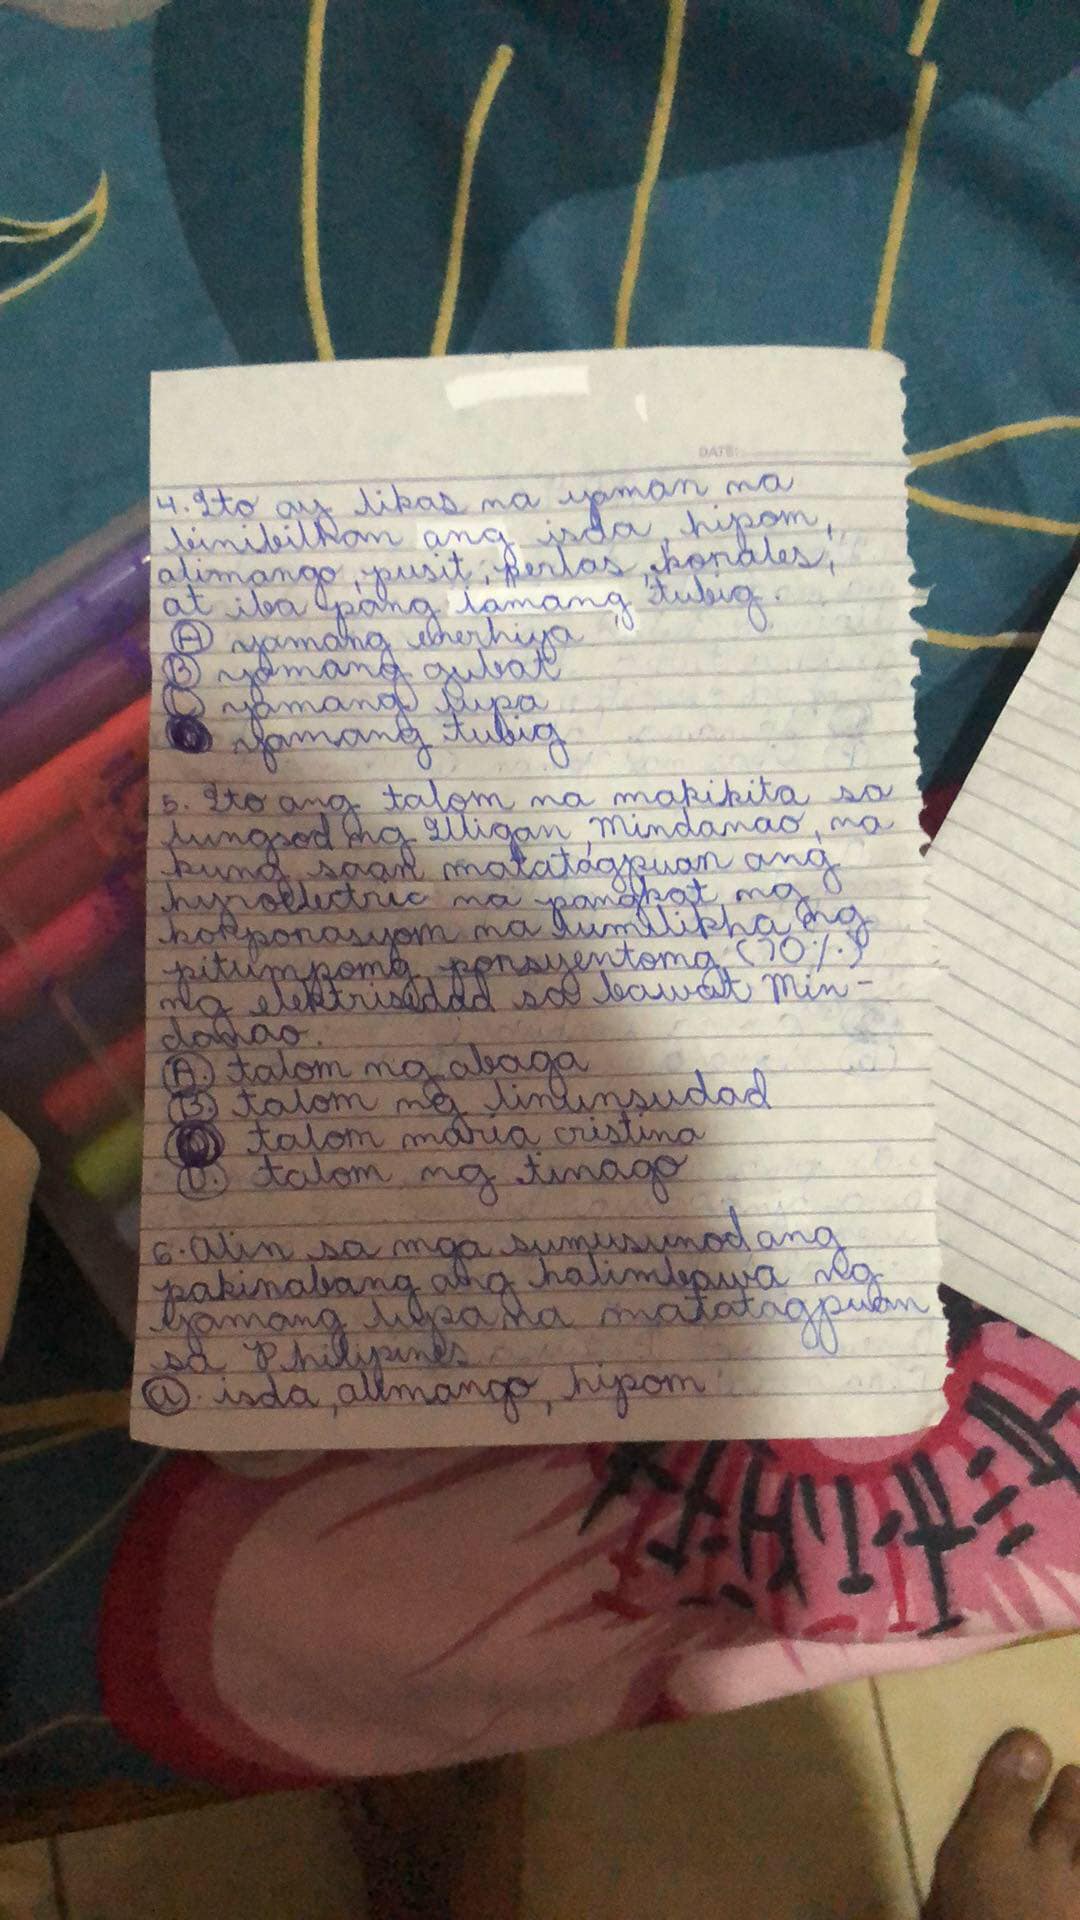 DATE:
4. Ito ay likas na yaman na
binibilhan ang isda, hipom,
alimango, pusit, perlas, korales,
at iba pang lamang tubig.
A yamang enerhiya
B yamang gubat
C yamang lupa
yamang tubig
5. Ito ang talom na makikita sa
lungsod ng Illigan, Mindanao, na
kung saan matatagpuan ang
hyroelectric na pangkat ng
korporasyom na lumilikha ng
pitumpomg porsyentomg (70%)
ng elektrisidad sa bawat Min-
danao.
A. talom ng abaga
B. talom ng linunsudad
talom maria cristina
D. talom ng tinago
6. Alin sa mga sumusunod ang
pakinabang ang halimbawa ng
yamang lupa na matatagpuan
sa Philipines
a. isda, alimango, hipom